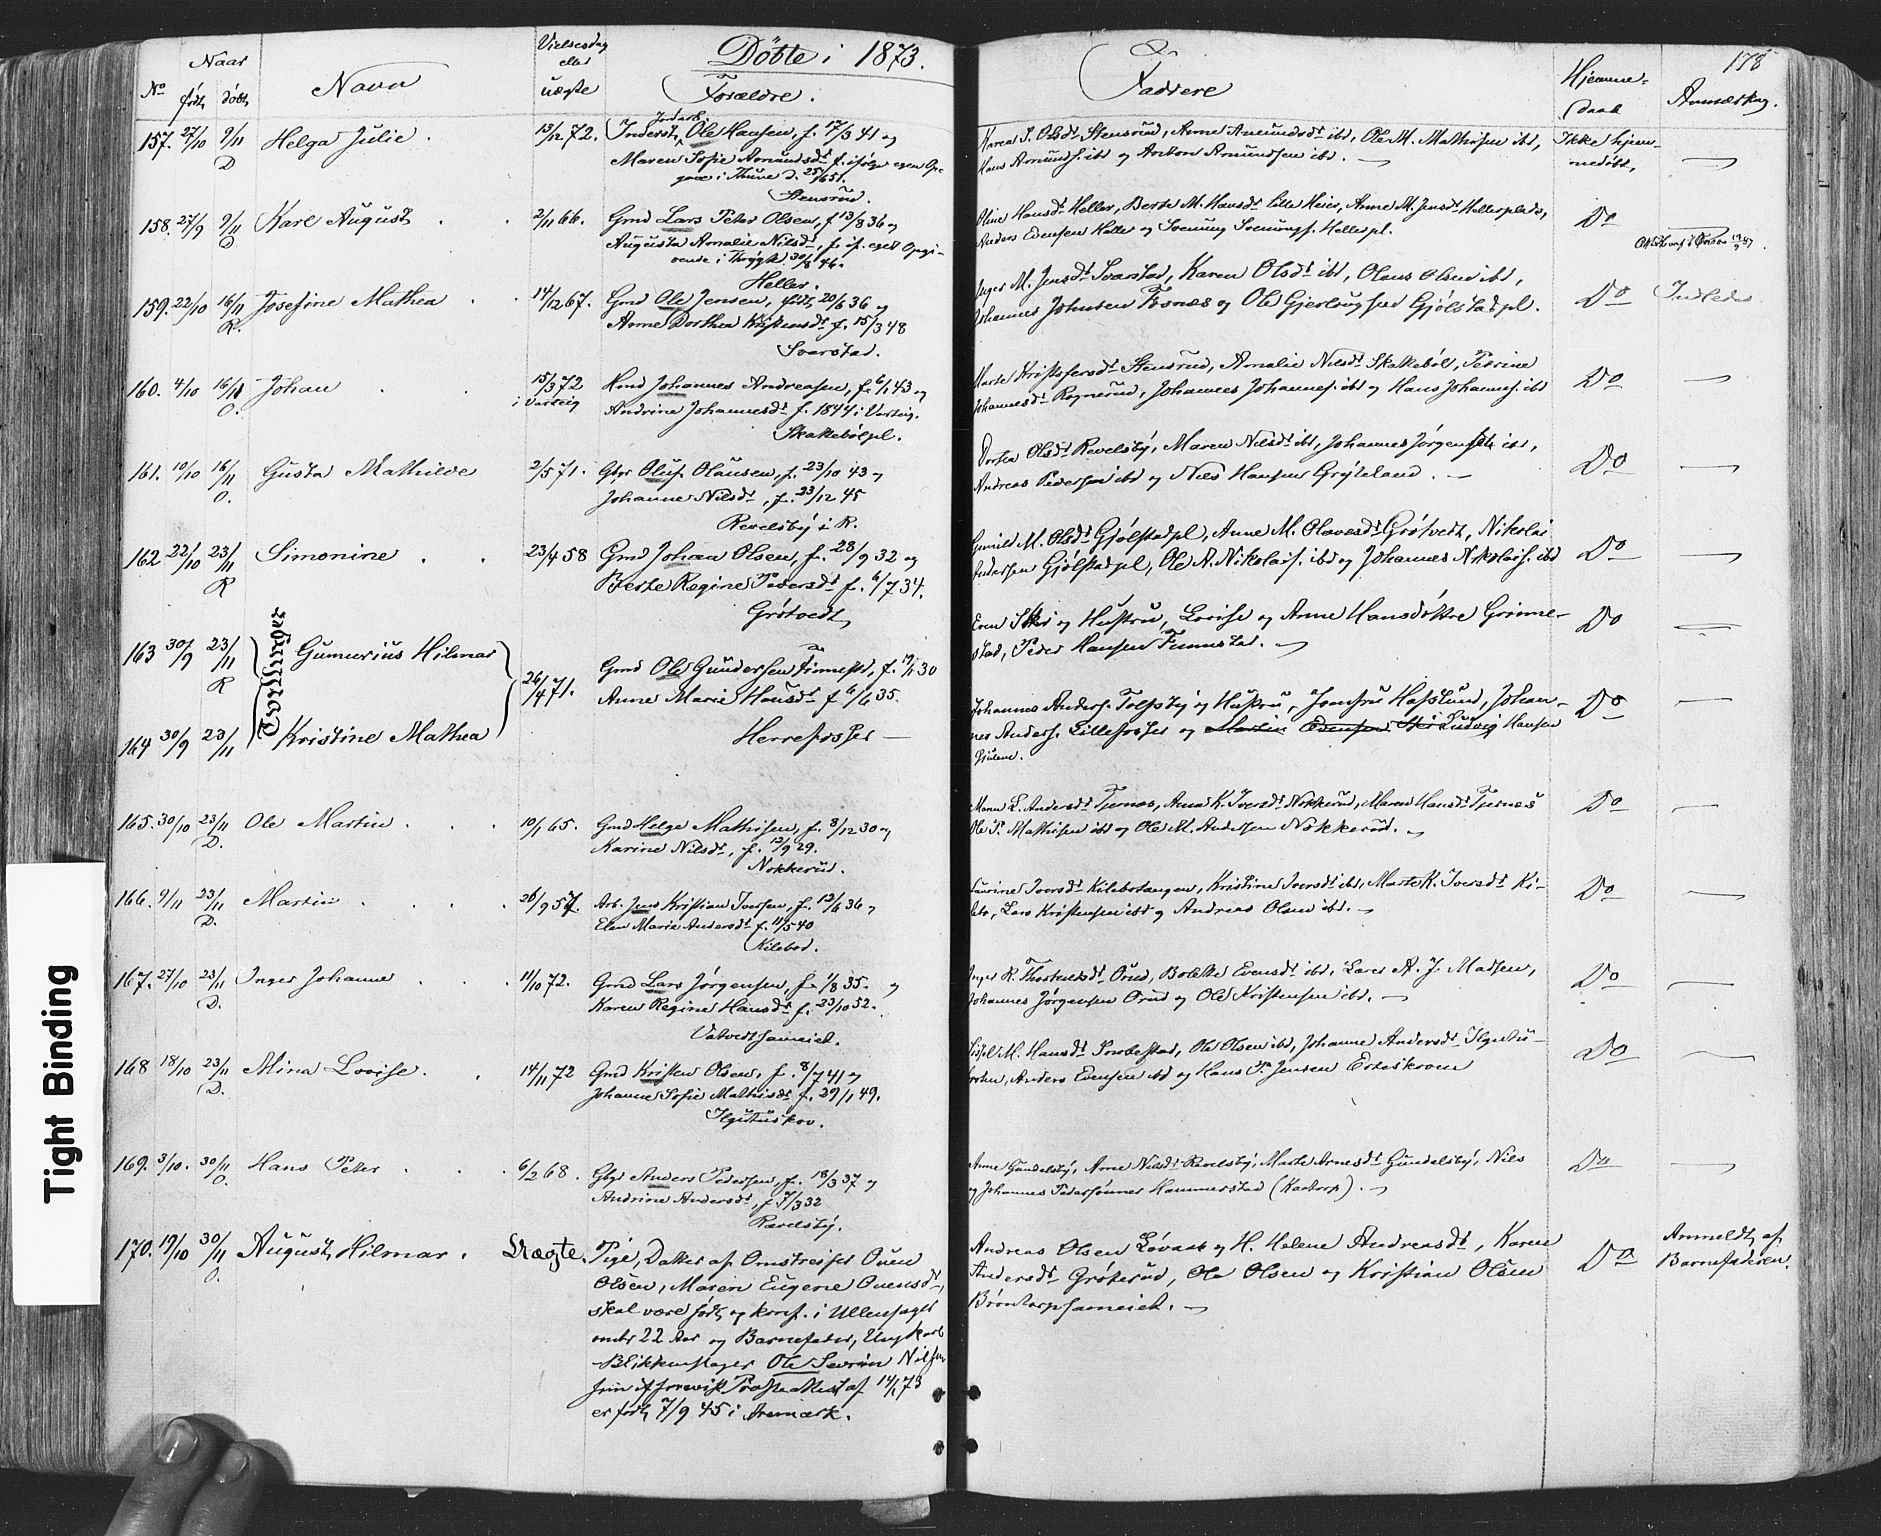 Døbte i 1873.
178
No
Naar
født
døbt
Navn
Vielsesdag
eller
uægte
Forældre.
Faddere
Hjemme-
daab
Anmærkng.
157. 27/10 9/11 Helga Julie. 13/12 72. Inderst, Ole Hansen, f. 17/3 41 og
D Maren Sofie Amundsdt f. ifølge egen Op-
Stensrud.
Hans Amunds. ibd og Anton Amundsen ibd.
Ikke hjem-
medøbt,
158. 27/9 9/11 Karl August 2/11 66. Gmd Lars Peter Olsen, f 13/8 36 og
D. Augusta Amalie Nilsdt, f. if. eget Opgi-
vende i Thrygst 30/8 46.
Heller.
Oline Hansdt Heller, Berte M. Hansdt Lille Heier, Anne M. Jensdt Hellerplads,
Anders Evensen Heller og Svenung Svenungs. Hellerpl.
Do
159. 22/10 16/11 Josefine Mathea 14/12 67. Gmd Ole Jensen, født 20/6 36 og
R. Anne Dorthea Kristensdt f. 15/3 48
Svarstad.
Inger M. Jensdt Svarstad, Karen Olsdt ibd, Olaus Olsen ibd,
Johannes Johnsen Fosnæs og Ole Gjerlaugsen Gjølstadpl.
Do
160. 4/10 16/11 Johan 15/3 72 Hmd Johannes Andreasen, f. 6/1 43 og
O. i Varteig Andrine Johannesdt f. 1844 i Varteig.
Skakkebølpl.
Marte Kristofersdt Stensrud, Amalie Nilsdt Skakkebøl, Petrine
Johannesdt Rognerud, Johannes Johannes. ibd og Hans Johannes. ibd
Do
161. 10/10 16/11 Gusta Mathilde 2/5 71. Gbr Oluf Olausen, f. 23/10 43 og
O. Johanne Nilsdt, f. 23/12 45
Revelsby i R.
Dortea Olsdt Revelsby, Maren Nilsdt ibd, Johannes Jørgensen ibd,
Andreas Pedersen ibd og Nils Hansen Grøteland.
Do
162 22/10 23/11 Simonine 23/4 58 Gmd Johan Olsen, f. 28/9 32 og
R Berte Regine Pedersdt f. 6/7 34.
Grøtvedt
Gunild M. Olsdt Gjølstadpl, Anne M. Olavesdt Grøtvedt, Nikolai
Andersen Gjølstadpl, Ole A. Nikolais. ibd og Johannes Nikolais. ibd
Do
163 30/9 23/11 Gunerius Hilmar
R
Tvillinger
26/4 71.
Gmd Ole Gundersen f. 19/1 30
Anne Marie Hansdt f 6/6 35.
Even Ski og Hustru, Lovise og Anne Hansdøttre Grime-
stad, Peder Hansen Finnestad.
Do
164 30/9 23/11 Kristine Mathea
Herrefosser
Johannes Anders. Tolfsby og Hustru, Jomfru Hafslund, Johan-
nes Anders. Lillefosser og Martin Evensen Ski Ludvig Hansen
Do
165. 30/10 23/11 Ole Martin 10/1 65. Gmd Helge Mathisen, f. 8/12 30 og
D. Karine Nilsdt, f. 13/9 29.
Nokkerud.
Maren L. Andersdt Tjernæs, Anne K. Iversdt Nokkerud, Maren Hansdt Tjernæs
Ole P. Mathisen ibd og Ole M. Andersen Nokkerud.
Do
166. 9/11 23/11 Martin 26/9 57. Arb. Jens Kristian Iversen, f. 13/6 36 og
D. Elen Marie Andersdt f. 11/5 40
Kilebod.
Laurine Iversdt Kilebotangen, Kristine Iversdt ibd, Marte K. Iversdt Ki-
lebo, Lars Kristensen ibd og Andreas Olsen ibd.
Do
167. 27/10 23/11 Inger Johanne 11/10 72. Gmd Lars Jørgensen, f. 1/8 35. og
D. Karen Regine Hansdt f. 23/10 32.
Vatvedtsameiet.
Inger R. Thorkilsdt Orud, Bolette Evensdt ibd, Lars A. J. Madsen,
Johannes Jørgensen Orud og Ole Kristensen ibd.
Do
168 18/10 23/11 Mina Lovise. 14/11 72 Gmd Kristen Olsen, f. 8/7 41 og
D. Johanne Sofie Mathisdt f. 29/1 49.
Sispel M. Hansdt Ole Olsen ibd, Johanne Andersdt
Anders Evensen ibd og Hans P. Jensen
Do
169. 3/10. 30/11 Hans Peter 6/2 68. Gbr Anders Pedersen, f. 18/3 37 og
O. Andrine Andersdt, f 7/3 32
Revelsby.
Anne Gundelsby, Anne Nilsdt Revelsby, Marte Arnesdt Gundelsby, Nils
og Johannes Pedersønner Hammerstad (Kastorp).
Do
170. 19/10 30/11 August Hilmar. Uægte. Pige, Datter af Omstreifer Ouen
O. Olsen, Maren Eugene Ouensdt,
skal være født og konf. i Ullensager
omtr 22 Aar og Barnefader, Ungkarl
Blikkenslager Ole Severin Nilsen
som if. forevist Præsteattest af 14/1 73
er født 7/9 45 i Aremark.
Andreas Olsen Løvaas og H. Helene Andreasdt, Karen
Andersdt Grøterud, Ole Olsen og Kristian Olsen
Brøntorpsameiet.
Do
Anmeldt af
Barnefaderen.
Tight Binding